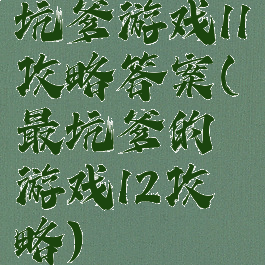 坑爹游戏11
攻略答案(
最坑爹的
游戏12攻
略)